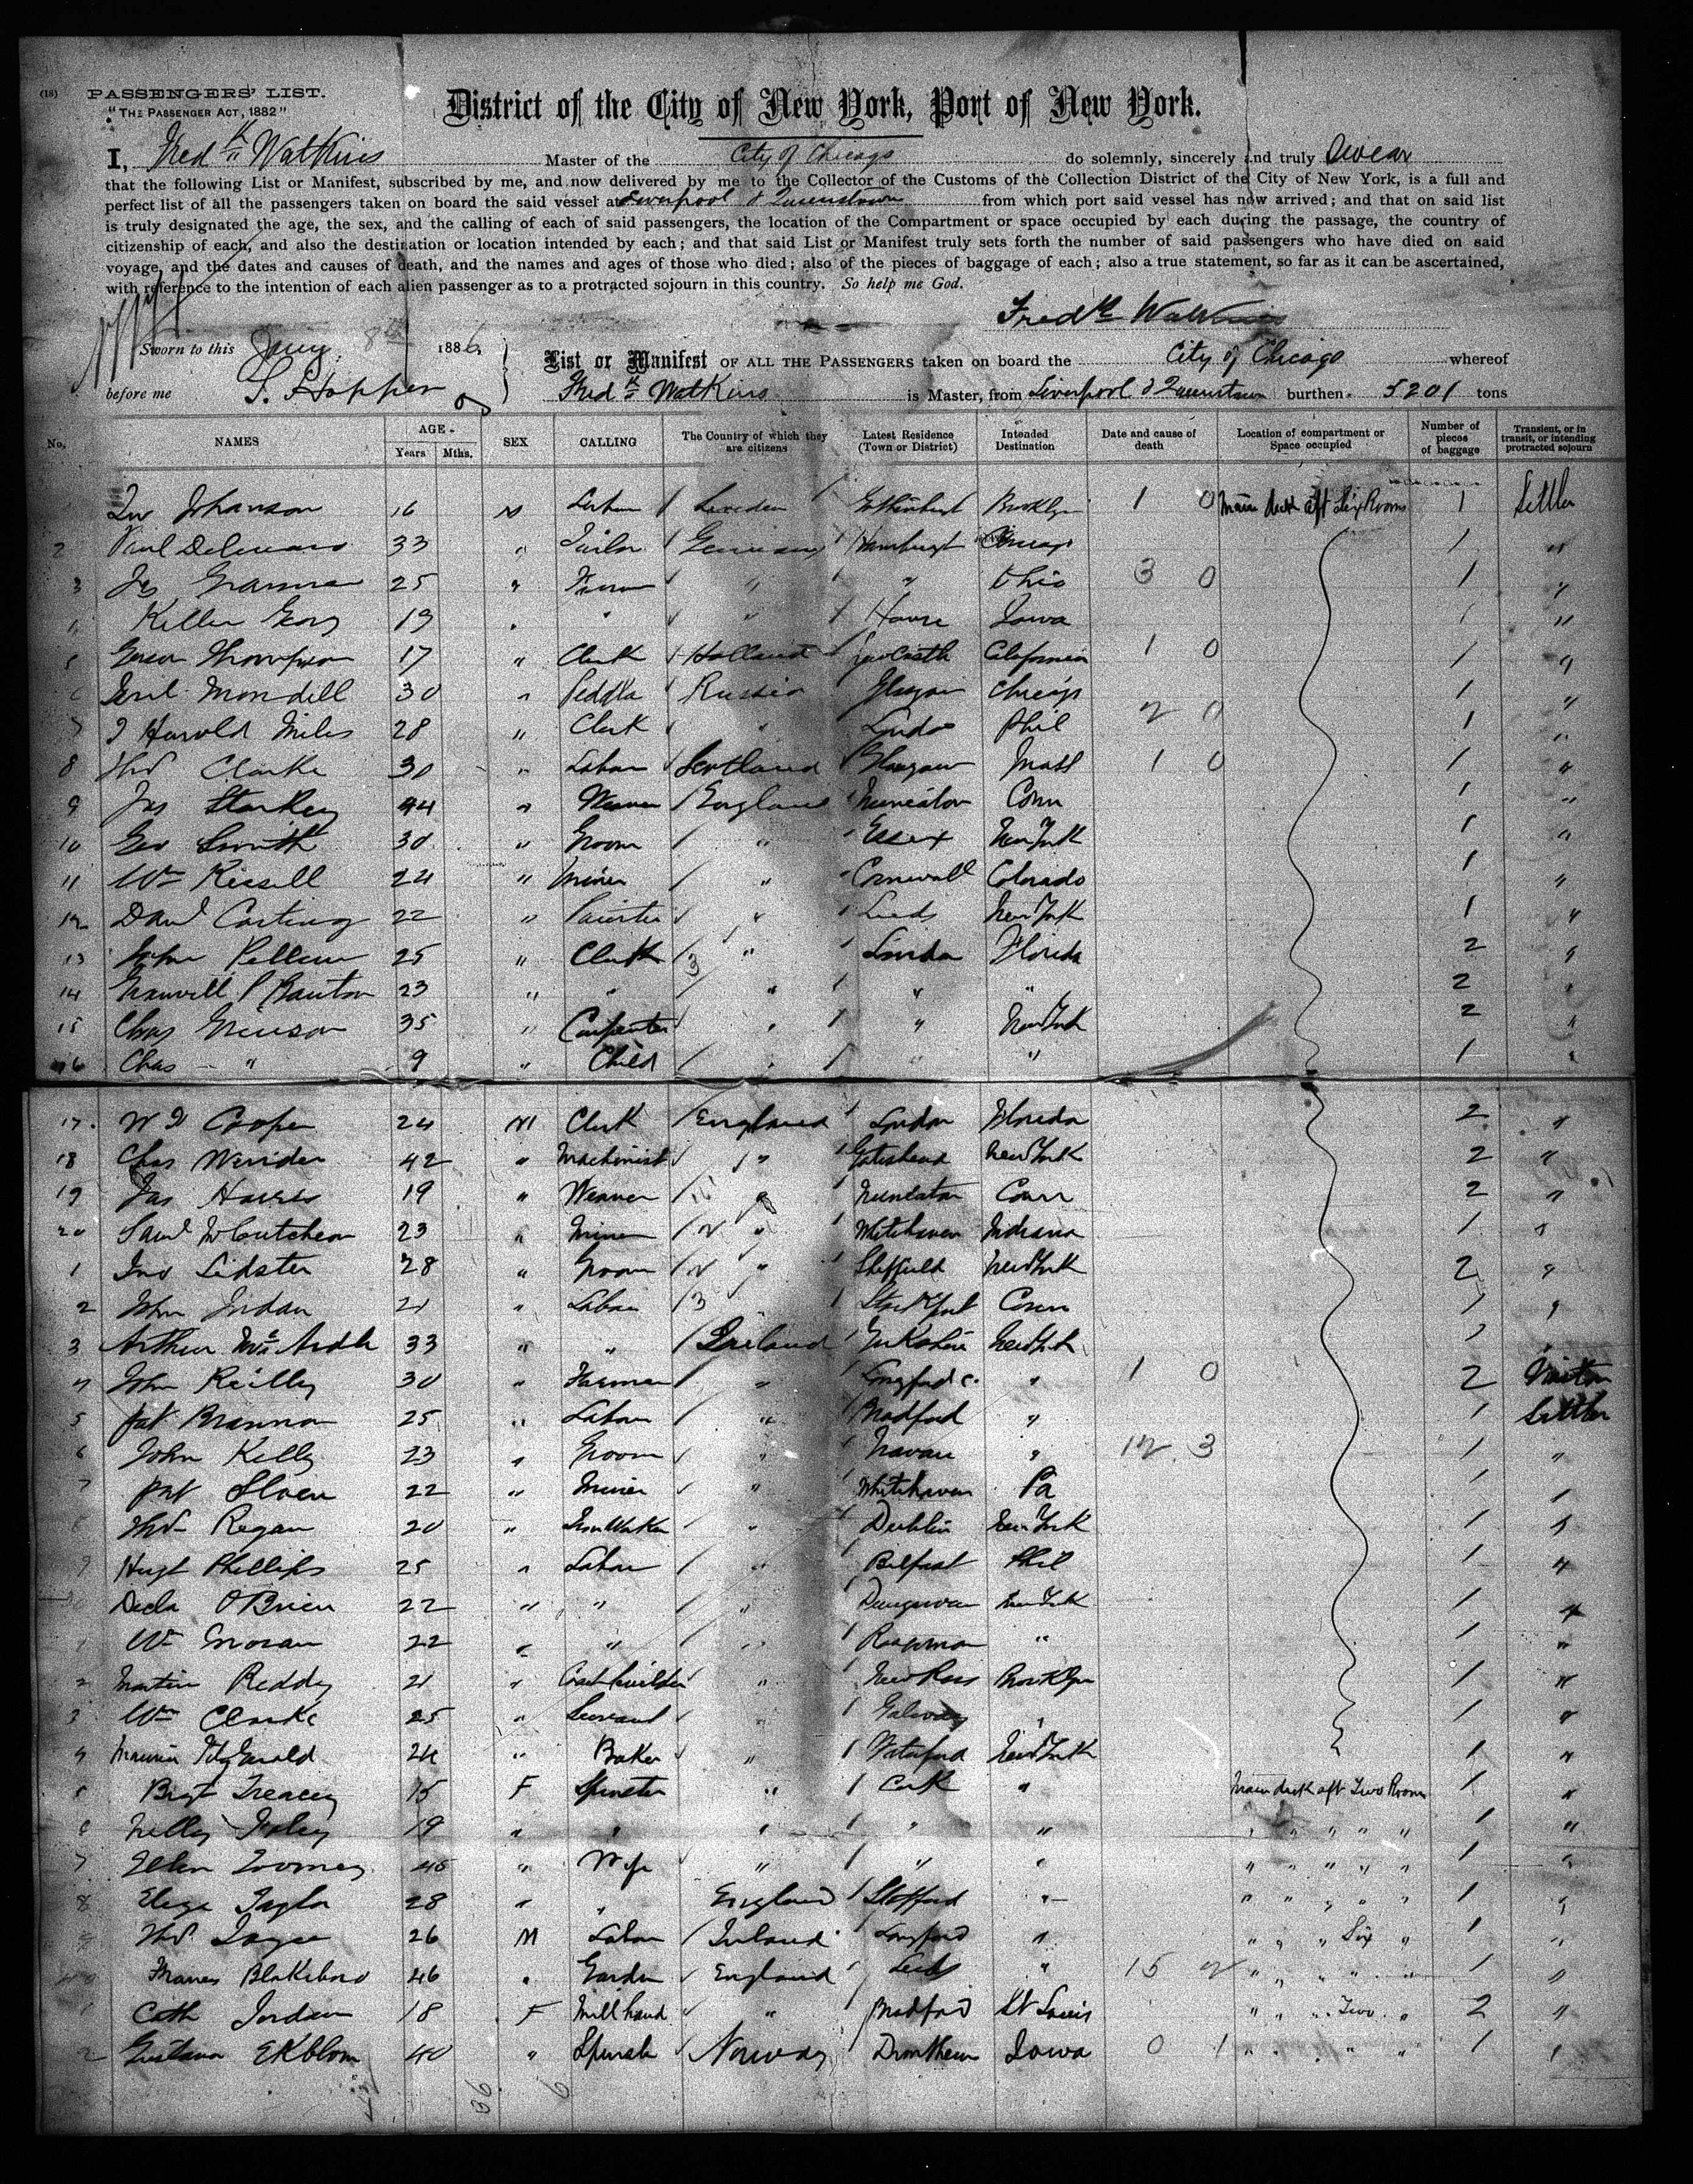 (18) PASSENGERS' LIST.
"THE PASSENGER ACT, 1882"
District of the City of New York, Port of New York.
I, Fredk Watkins Master of the City of Chicago do solemnly, sincerely and truly swear
that the following List or Manifest, subscribed by me, and now delivered by me to the Collector of the Customs of the Collection District of the City of New York, is a full and
perfect list of all the passengers taken on board the said vessel at Liverpool & Queenstown from which port said vessel has now arrived; and that on said list
is truly designated the age, the sex, and the calling of each of said passengers, the location of the Compartment or space occupied by each during the passage, the country of
citizenship of each, and also the destination or location intended by each; and that said List or Manifest truly sets forth the number of said passengers who have died on said
voyage, and the dates and causes of death, and the names and ages of those who died; also of the pieces of baggage of each; also a true statement, so far as it can be ascertained,
with reference to the intention of each alien passenger as to a protracted sojourn in this country. So help me God.
Fredk Watkins
Sworn to this Jany 8th 1886
List or Manifest OF ALL THE PASSENGERS taken on board the City of Chicago whereof
before me S. Hopper
Fredk Watkins is Master, from Liverpool & Queenstown burthen 5201 tons
No. NAMES AGE Years Mths. SEX CALLING The Country of which they are citizens Latest Residence (Town or District) Intended Destination Date and cause of death Location of compartment or Space occupied Number of pieces of baggage Transient, or in transit, or intending protracted sojourn
Johanson 16 M Sweden Brooklyn 1 0 Main deck aft Six Rooms 1 Settler
2 Paul 33 " Tailor Germany Hamburgh Chicago 1 "
3 25 " " " Ohio 3 0 1 "
Keller Georg 19 " " " Havre Iowa 1 "
5 Thompson 17 " Clerk Holland Newcastle California 1 0 1 "
6 Mondell 30 " Peddler Russia Glasgow Chicago 1 "
7 J Harold Miles 28 " Clerk " London Phil 2 0 1 "
8 Thos Clarke 30 " Labour Scotland Glasgow Mass 1 0 1 "
9 Jas Starkey 44 " Weaver England Nuneaton Conn 1 "
10 Geo Smith 30 " Groom " Essex New York 1 "
11 Wm Kissell 24 " Miner " Cornwall Colorado 1 "
12 Davd 22 " Painter " Leeds New York 1 "
13 John Pellew 25 " Clerk 3 " London Florida 2 "
14 23 " " " " " 2 "
15 Chas 35 " Carpenter " " New York 2 "
16 Chas " 9 " Child " " " 1 "
17 Cooper 24 M Clerk England London Florida 2 "
18 Chas 42 " Machinist " Gateshead New York 2 "
19 Jas Harris 19 " Weaver " Nuneaton Conn 2 "
20 Saml McCutcheon 23 " Miner " Whitehaven Indiana 1 "
1 Jno Lidster 28 " Groom " Sheffield New York 2 "
2 John Jordan 21 " Labour 3 " Stockport Conn 1 "
3 Arthur McArdle 33 " " Ireland Yorkshire New York 1 "
4 John Reilly 30 " Farmer " Longford " 1 0 2 Visitor
5 Pat Brannon 25 " Labour " Bradford " 1 Settler
6 John Kelly 23 " Groom " Navan " 12 3 1 "
7 Pat Sloen 22 " Miner " Whitehaven Pa 1 "
8 Thos Regan 20 " Iron Worker " Dublin New York 1 "
9 Hugh Phillips 25 " Labour " Belfast Phil 1 "
Decla O'Brien 22 " " " Dungarvan New York 1 "
1 Wm 22 " " " " 1 "
2 Martin Reddy 21 " Coachbuilder " New Ross Brooklyn 1 "
3 Wm Clarke 25 " Servant " Galway " 1 "
4 Maurice FitzGerald 24 " Baker " Waterford New York 1 "
5 Brigt Treacey 15 F Spinster " Cork " Main deck aft Two Rooms 1 "
6 Nelly Foley 19 " " " " " " " " " " 1 "
7 Ellen Toomey 45 " Wife " " " " " " " " 1 "
8 Eliza Taylor 28 " " England Stafford " " " " " " 1 "
9 Thos Joyce 26 M Labour Ireland Longford " " " " Six " 1 "
Blakeboro 46 " England Leeds " 15 2 " " " " " 1 "
1 Cath Jordan 18 F Mill hand " Bradford St Louis " " " Two " 2 "
2 Gustava Ekblom 40 " Norway Drontheim Iowa 0 1 " " " " " 1 "
36 6